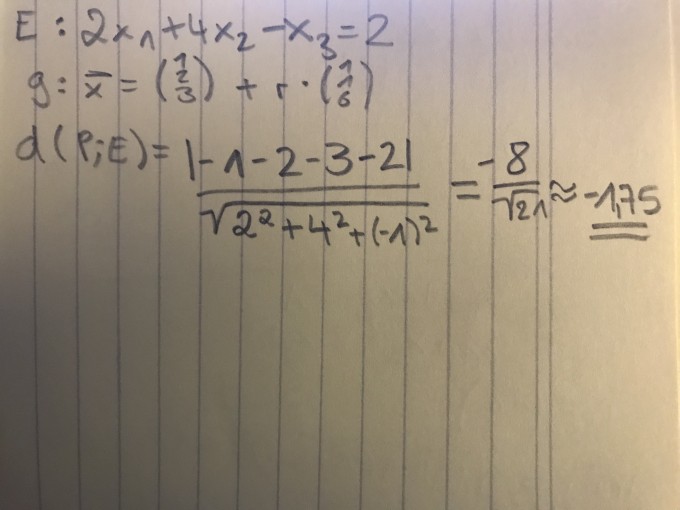 E: 2x₁+4x₂-x₃=2
g: x̄ = (1 2 3) + r · (1 1 6)
d(P;E)= |-1-2-3-2| / √2²+4²+(-1)² = -8/√21 ≈ -1,75